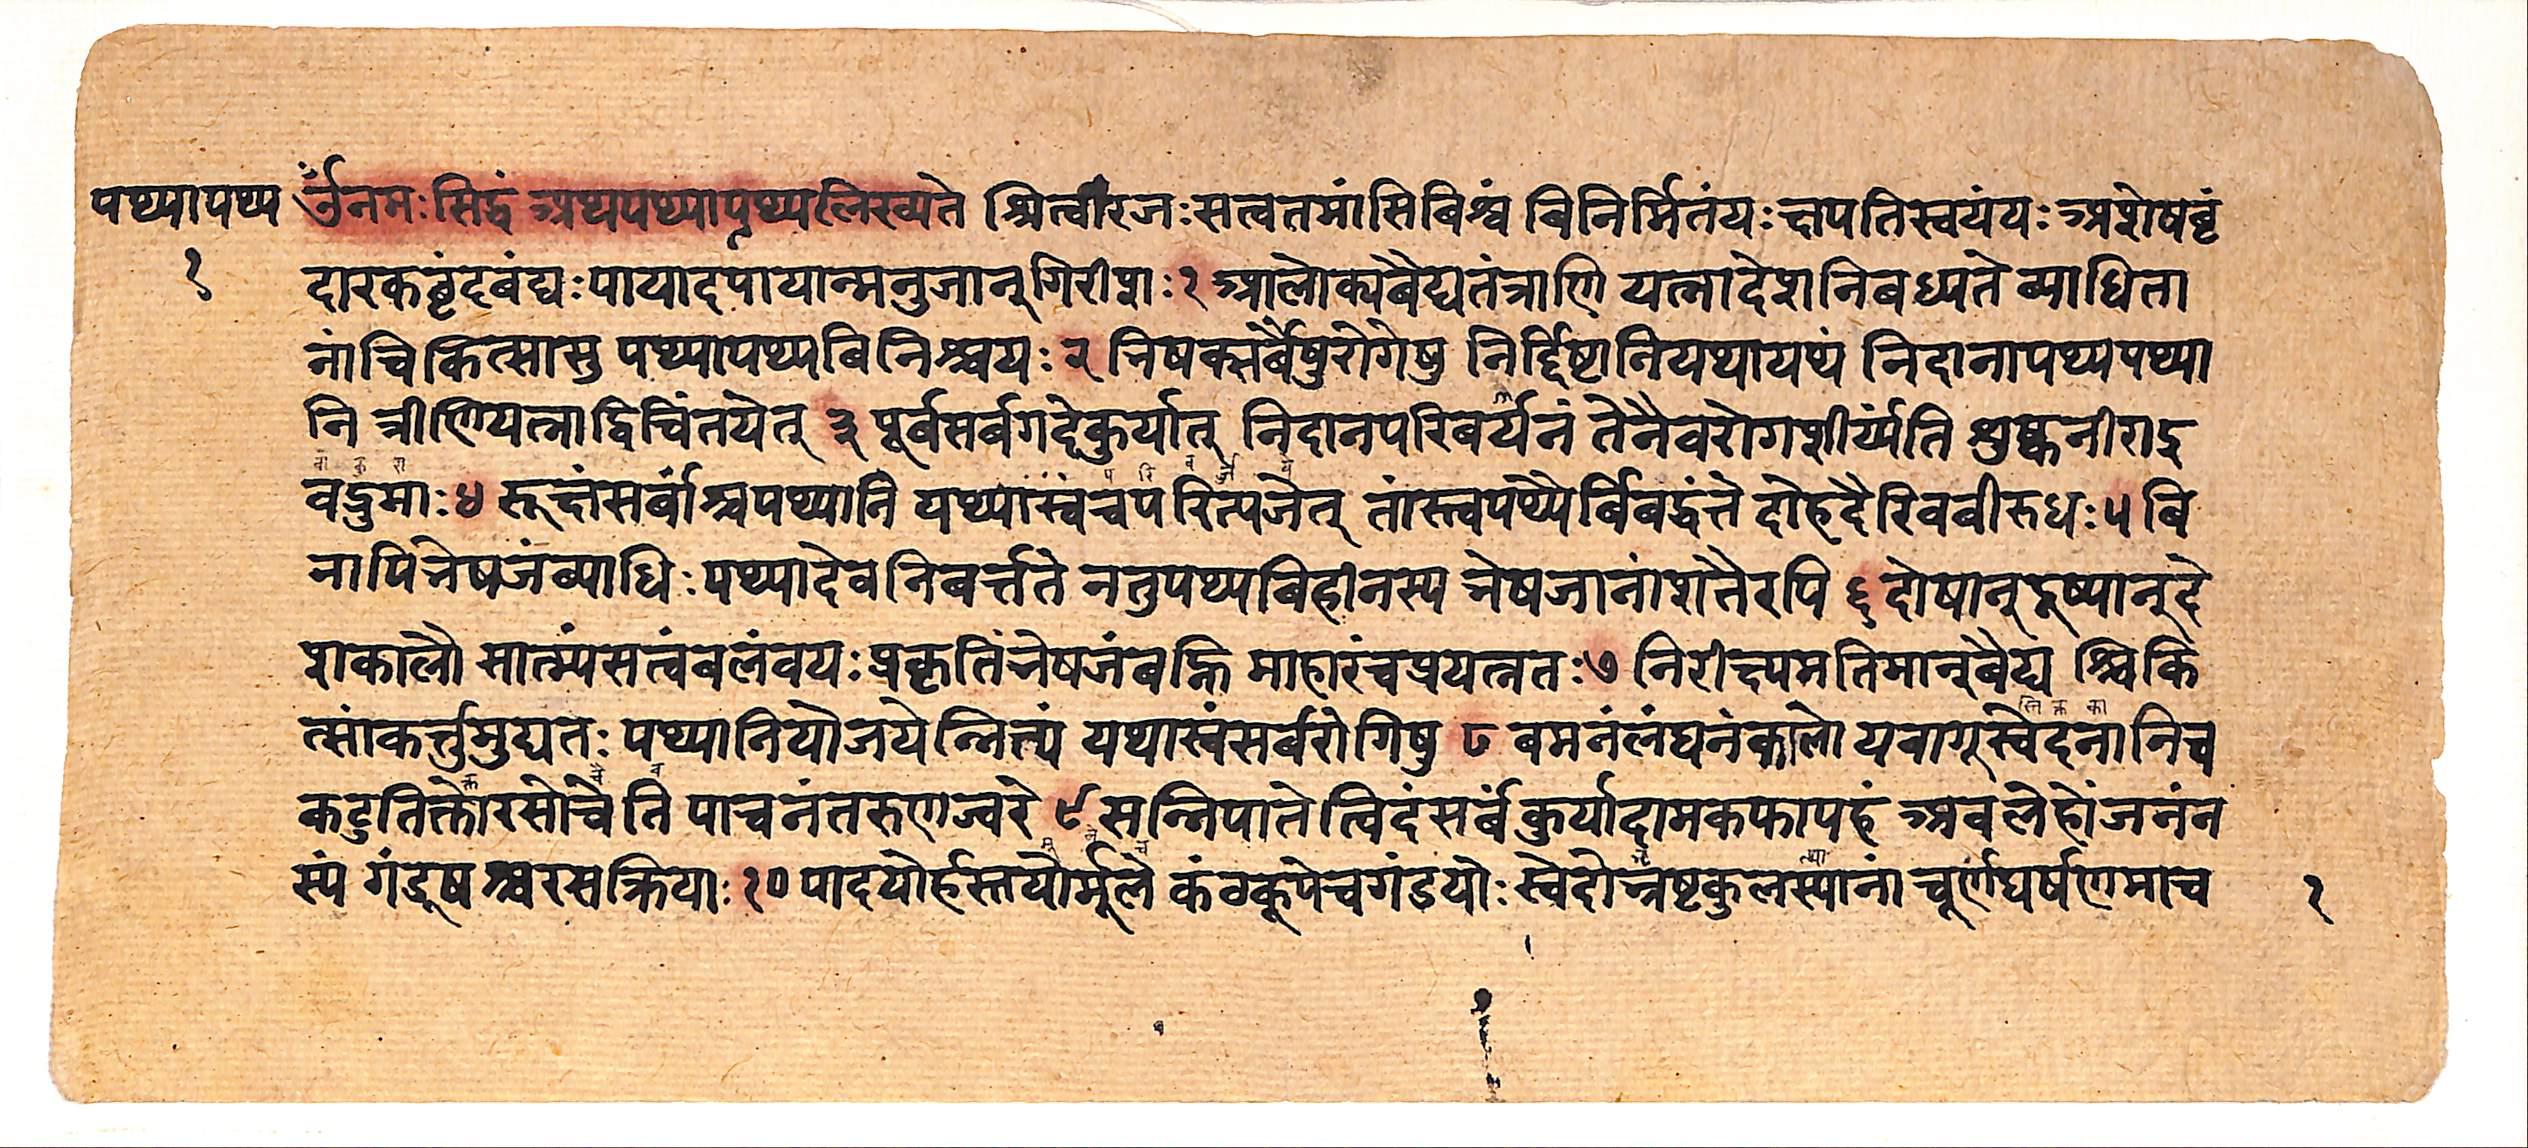 पथ्यापथ्य
१
ॐनमःसिद्धं अथपथ्यापथ्यलिख्यते श्रित्वारजःसत्वतमांसिबिश्वं बिनिर्मितंयःक्षपतिस्वयंयः अशेषबृं
दारकवृंदबंद्यःपायादपायान्मनुजान्गिरीशः१ आलोक्यबैद्यतंत्राणि यत्नादेशनिबध्यते व्याधिता
नांचिकित्सासु पथ्यापथ्यबिनिश्चयः२ भिषक्सर्बैषुरोगेषु निर्द्दिष्टानियथायथं निदानापथ्यपथ्या
नि त्रीणियत्नाद्विचिंतयेत् ३ पूर्बसर्बगदेकुर्यात् निदानपरिबर्यनं तेनैवरोगशीर्य्यंति शुष्कनीराद्
वद्रुमाः४ रूक्षंसर्बांश्चपथ्यानि यथ्यांस्वंचपरित्यजेत् तांस्त्वपथ्यैर्बिबर्द्धंते दोहदैरिवबीरुधः५ बि
नापिभेषजंव्याधिःपथ्यादेवनिबर्त्तते नतुपथ्यबिहीनस्य भेषजानांशतैरपि ६ दोषान्दूष्यान्दे
शकालौ सात्म्यंसत्वंबलंवयःप्रकृतिंभेषजंबह्नि माहारंचप्रयत्नतः७ निरीक्ष्यमतिमान्बैद्य श्चिकि
त्सांकर्त्तुमुद्यतः पथ्यानियोजयेन्नित्यं यथास्वंसर्बरोगिषु ८ बमनंलंघनंकालो यवागूस्वेदनानिच
कटुतिक्तौरसोचैति पाचनंतरुणज्वरे ९ सन्निपाते त्विदंसर्बं कुर्यादामकफापहं अवलेहोंजनंन
स्यं गंडूषश्चरसक्रियाः१० पादयोर्हस्तयोर्मूले कंठकूपेचगंडयोः स्वेदोभ्रष्टकुलस्यानां चूर्णघर्षणमाच
१